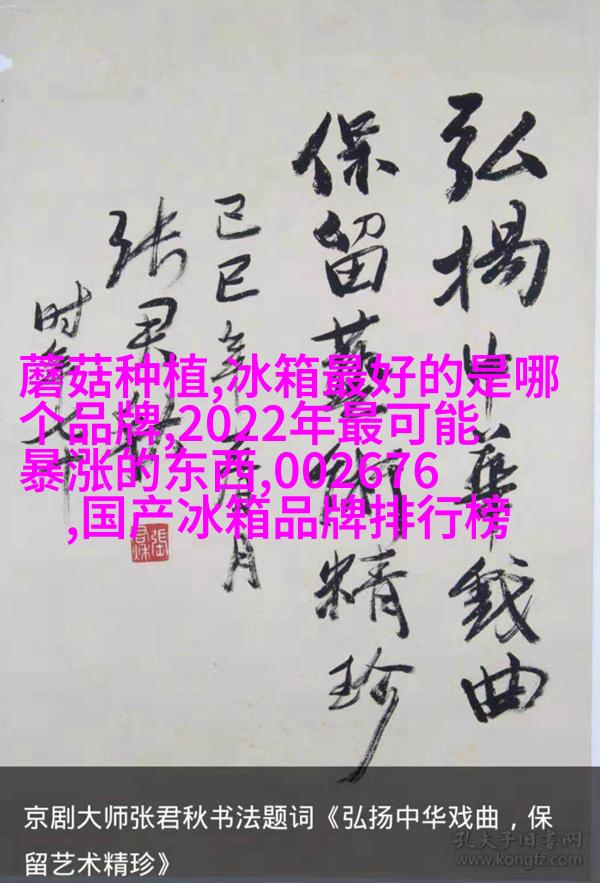 弘揚中華戲曲
保留藝術精珍
己巳年 月
张君秋
时年
蘑菇种植,冰箱最好的是哪
个品牌,2022年最可能
暴涨的东西,002676
,国产冰箱品牌排行榜
京剧大师张君秋书法题词《弘扬中华戏曲，保
留艺术精珍》
孔夫子旧书网
www.kongfz.com